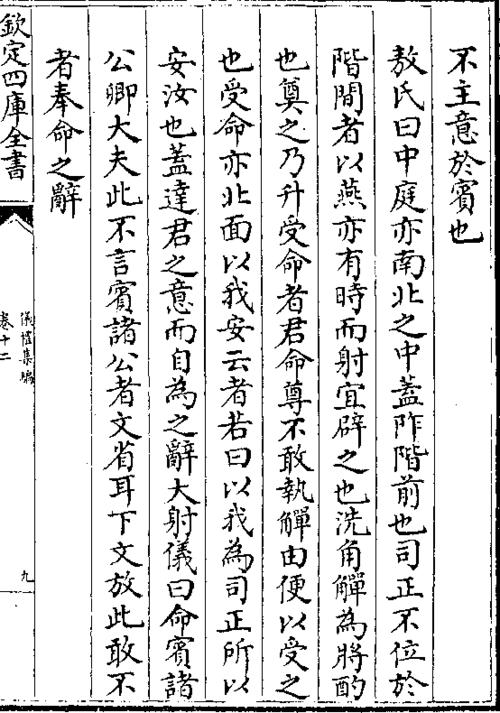 不主意於賓也
敖氏曰中庭亦南北之中蓋阼階前也司正不位於
階間者以燕亦有時而射宜辟之也洗角觶為將酌
也奠之乃升受命者君命尊不敢執觶由便以受之
也受命亦北面以我安云者若曰以我為司正所以
安汝也蓋達君之意而自為之辭大射儀曰命賓諸
公卿大夫此不言賓諸公者文省耳下文放此敢不
者奉命之辭
欽定四庫全書
儀禮集編
卷十二
九